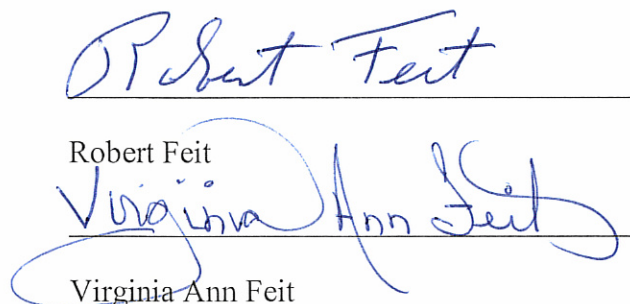 Robert Feit
Robert Feit
Virginia Ann Feit
Virginia Ann Feit